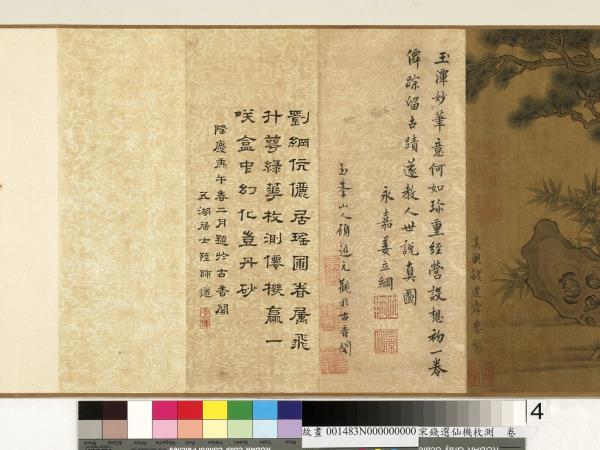 吳興錢選舜舉製
玉潭妙筆意何如珍重經營設想初一卷
傳踪留古蹟遂教人世說真圖
永嘉姜立綱
玉峯山人顧逛元觀於古香閣
劉綱伉儷居瑤圃眷屬飛
升萼綠華枚測傳機贏一
咲盒中幻化豈丹砂
隆慶庚午春二月題於古香閣
五湖居士陸師道
4
故畫 001483N000000000 宋錢選仙機枚測 卷